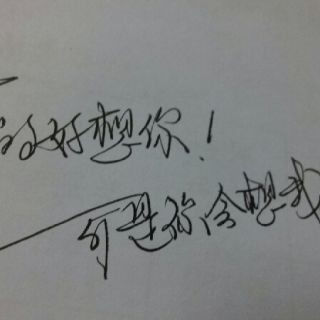 真的好想你！
可是你会想我